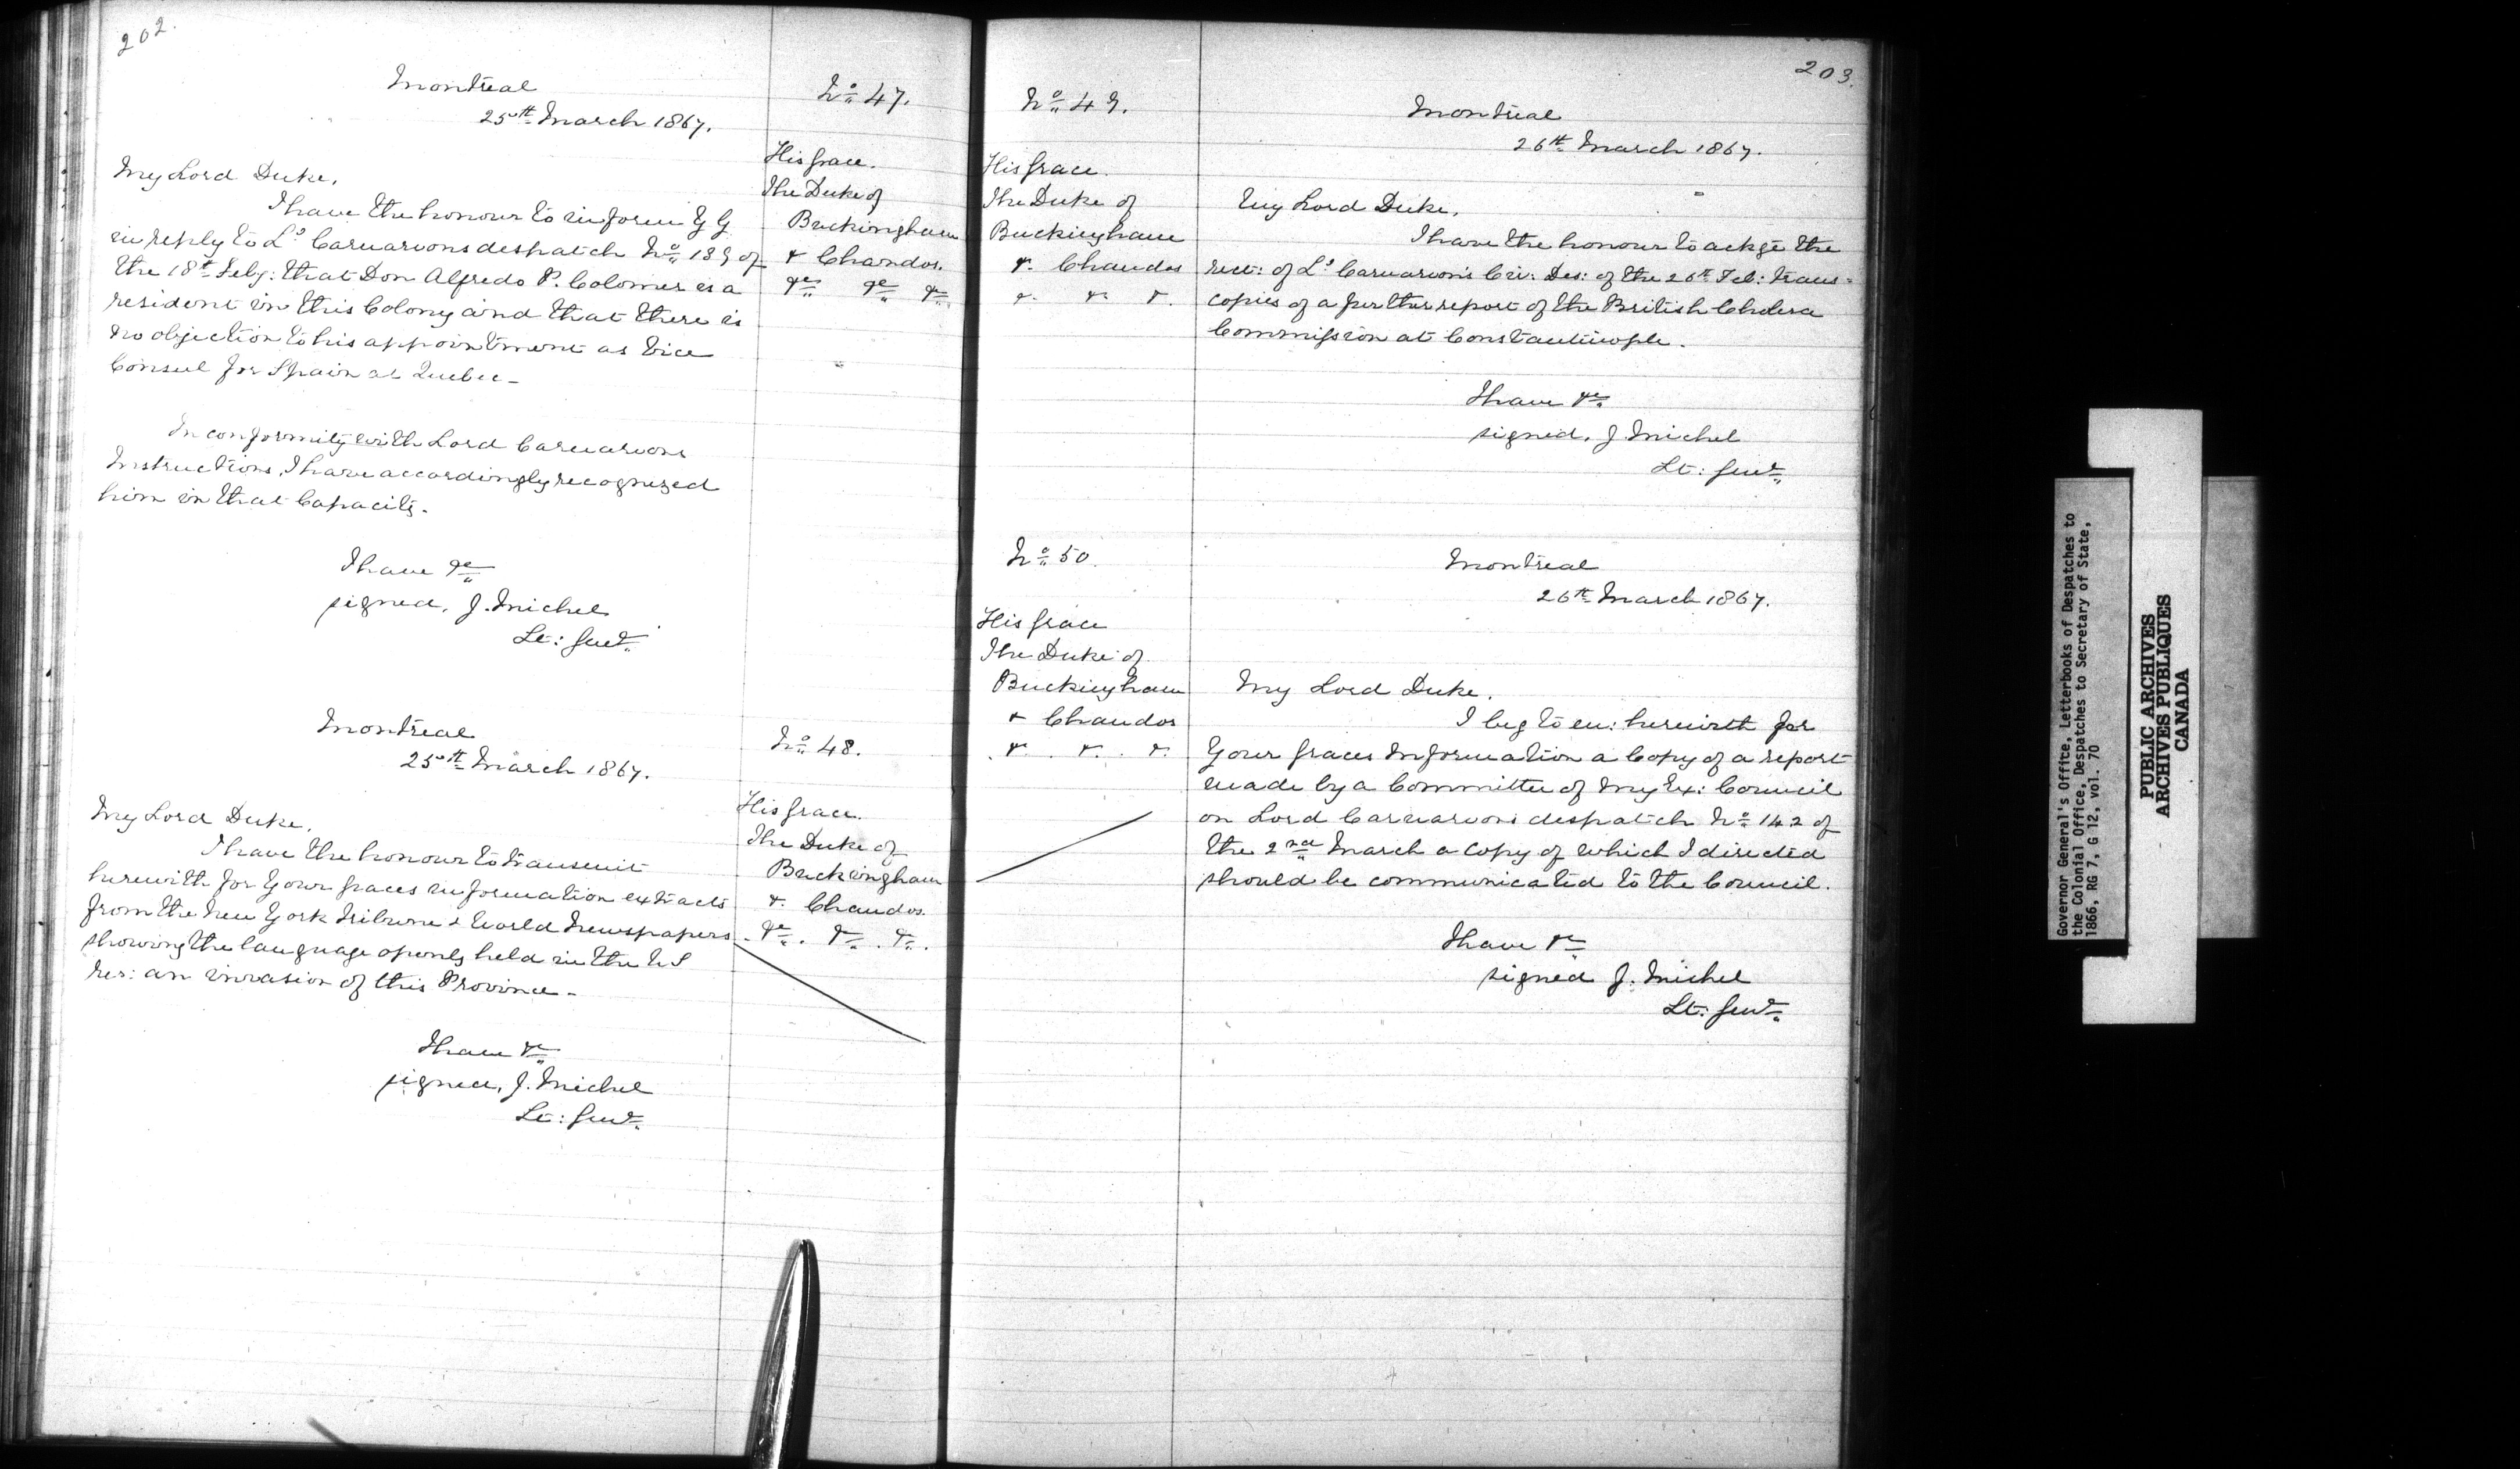 202.
Montreal
25th March 1867.
No 47.
His Grace.
The Duke of
Buckingham
& Chandos.
&c &c &c
My Lord Duke,
I have the honour to inform Y G
in reply to Ld Carnarvons despatch No 139 of
the 18th Feby: that Don Alfredo P. Colomer is a
resident in this Colony and that there is
no objection to his appointment as Vice
Consul for Spain at Quebec-
In conformity with Lord Carnarvons
Instructions, I have accordingly recognized
him in that Capacity.
I have &c
signed, J. Michel
Lt: Genl
Montreal
25th March 1867.
No 48.
His Grace.
The Duke of
Buckingham
& Chandos.
&c. &c. &c.
My Lord Duke,
I have the honour to transmit
herewith for Your Graces information extracts
from the New York Tribune & World Newspapers
showing the language openly held in the U S
res: an invasion of this Province-
I have &c
signed, J. Michel
Lt: Genl
203.
No 49.
His Grace.
The Duke of
Buckingham
&. Chandos
&. &. &.
Montreal
26th March 1867.
My Lord Duke,
I have the honour to ackge the
rect: of Ld Carnarvon's Cir: Des: of the 26th Feb: trans=
copies of a further report of the British Cholera
Commission at Constantinople.
I have &c
signed, J. Michel
Lt: Genl
No 50.
His Grace
The Duke of
Buckingham
& Chandos
&. &. &.
Montreal
26th March 1867.
My Lord Duke,
I beg to en: herewith for
Your Graces Information a Copy of a report
made by a Committee of my Ex: Council
on Lord Carnarvons despatch No 142 of
the 2nd March a copy of which I directed
should be communicated to the Council.
I have &c
signed J. Michel
Lt: Genl
Governor General's Office, Letterbooks of Despatches to
the Colonial Office, Despatches to Secretary of State,
1866, RG 7, G 12, vol. 70
PUBLIC ARCHIVES
ARCHIVES PUBLIQUES
CANADA